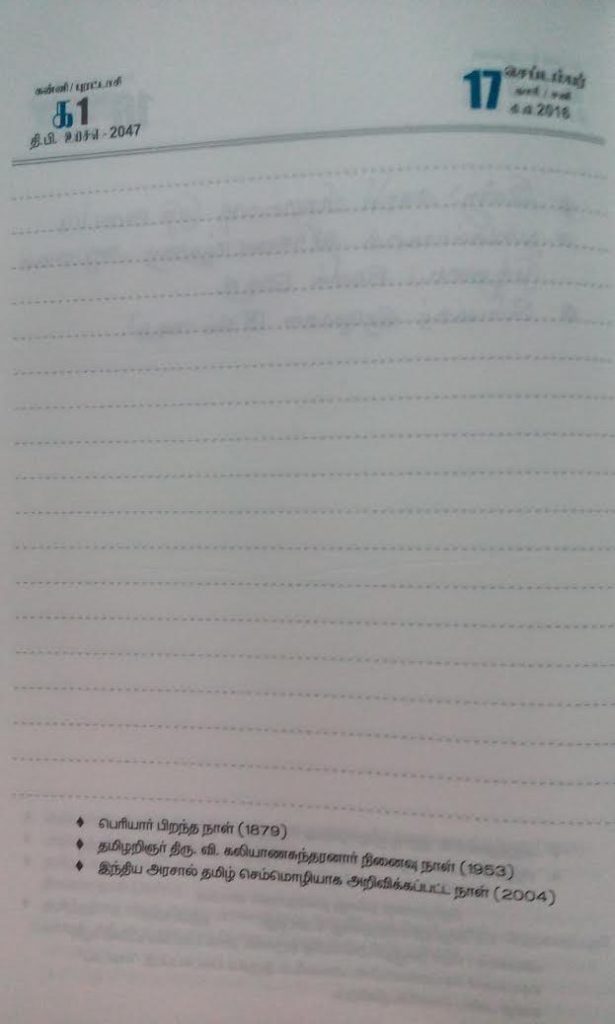 கன்னி / புரட்டாசி
௧ 1
தி.பி. ௨௦௪௭ - 2047
17
செப்டம்பர்
காரி / சனி
கி.பி. 2016
♦ பெரியார் பிறந்த நாள் (1879)
♦ தமிழறிஞர் திரு. வி. கலியாணசுந்தரனார் நினைவு நாள் (1953)
♦ இந்திய அரசால் தமிழ் செம்மொழியாக அறிவிக்கப்பட்ட நாள் (2004)